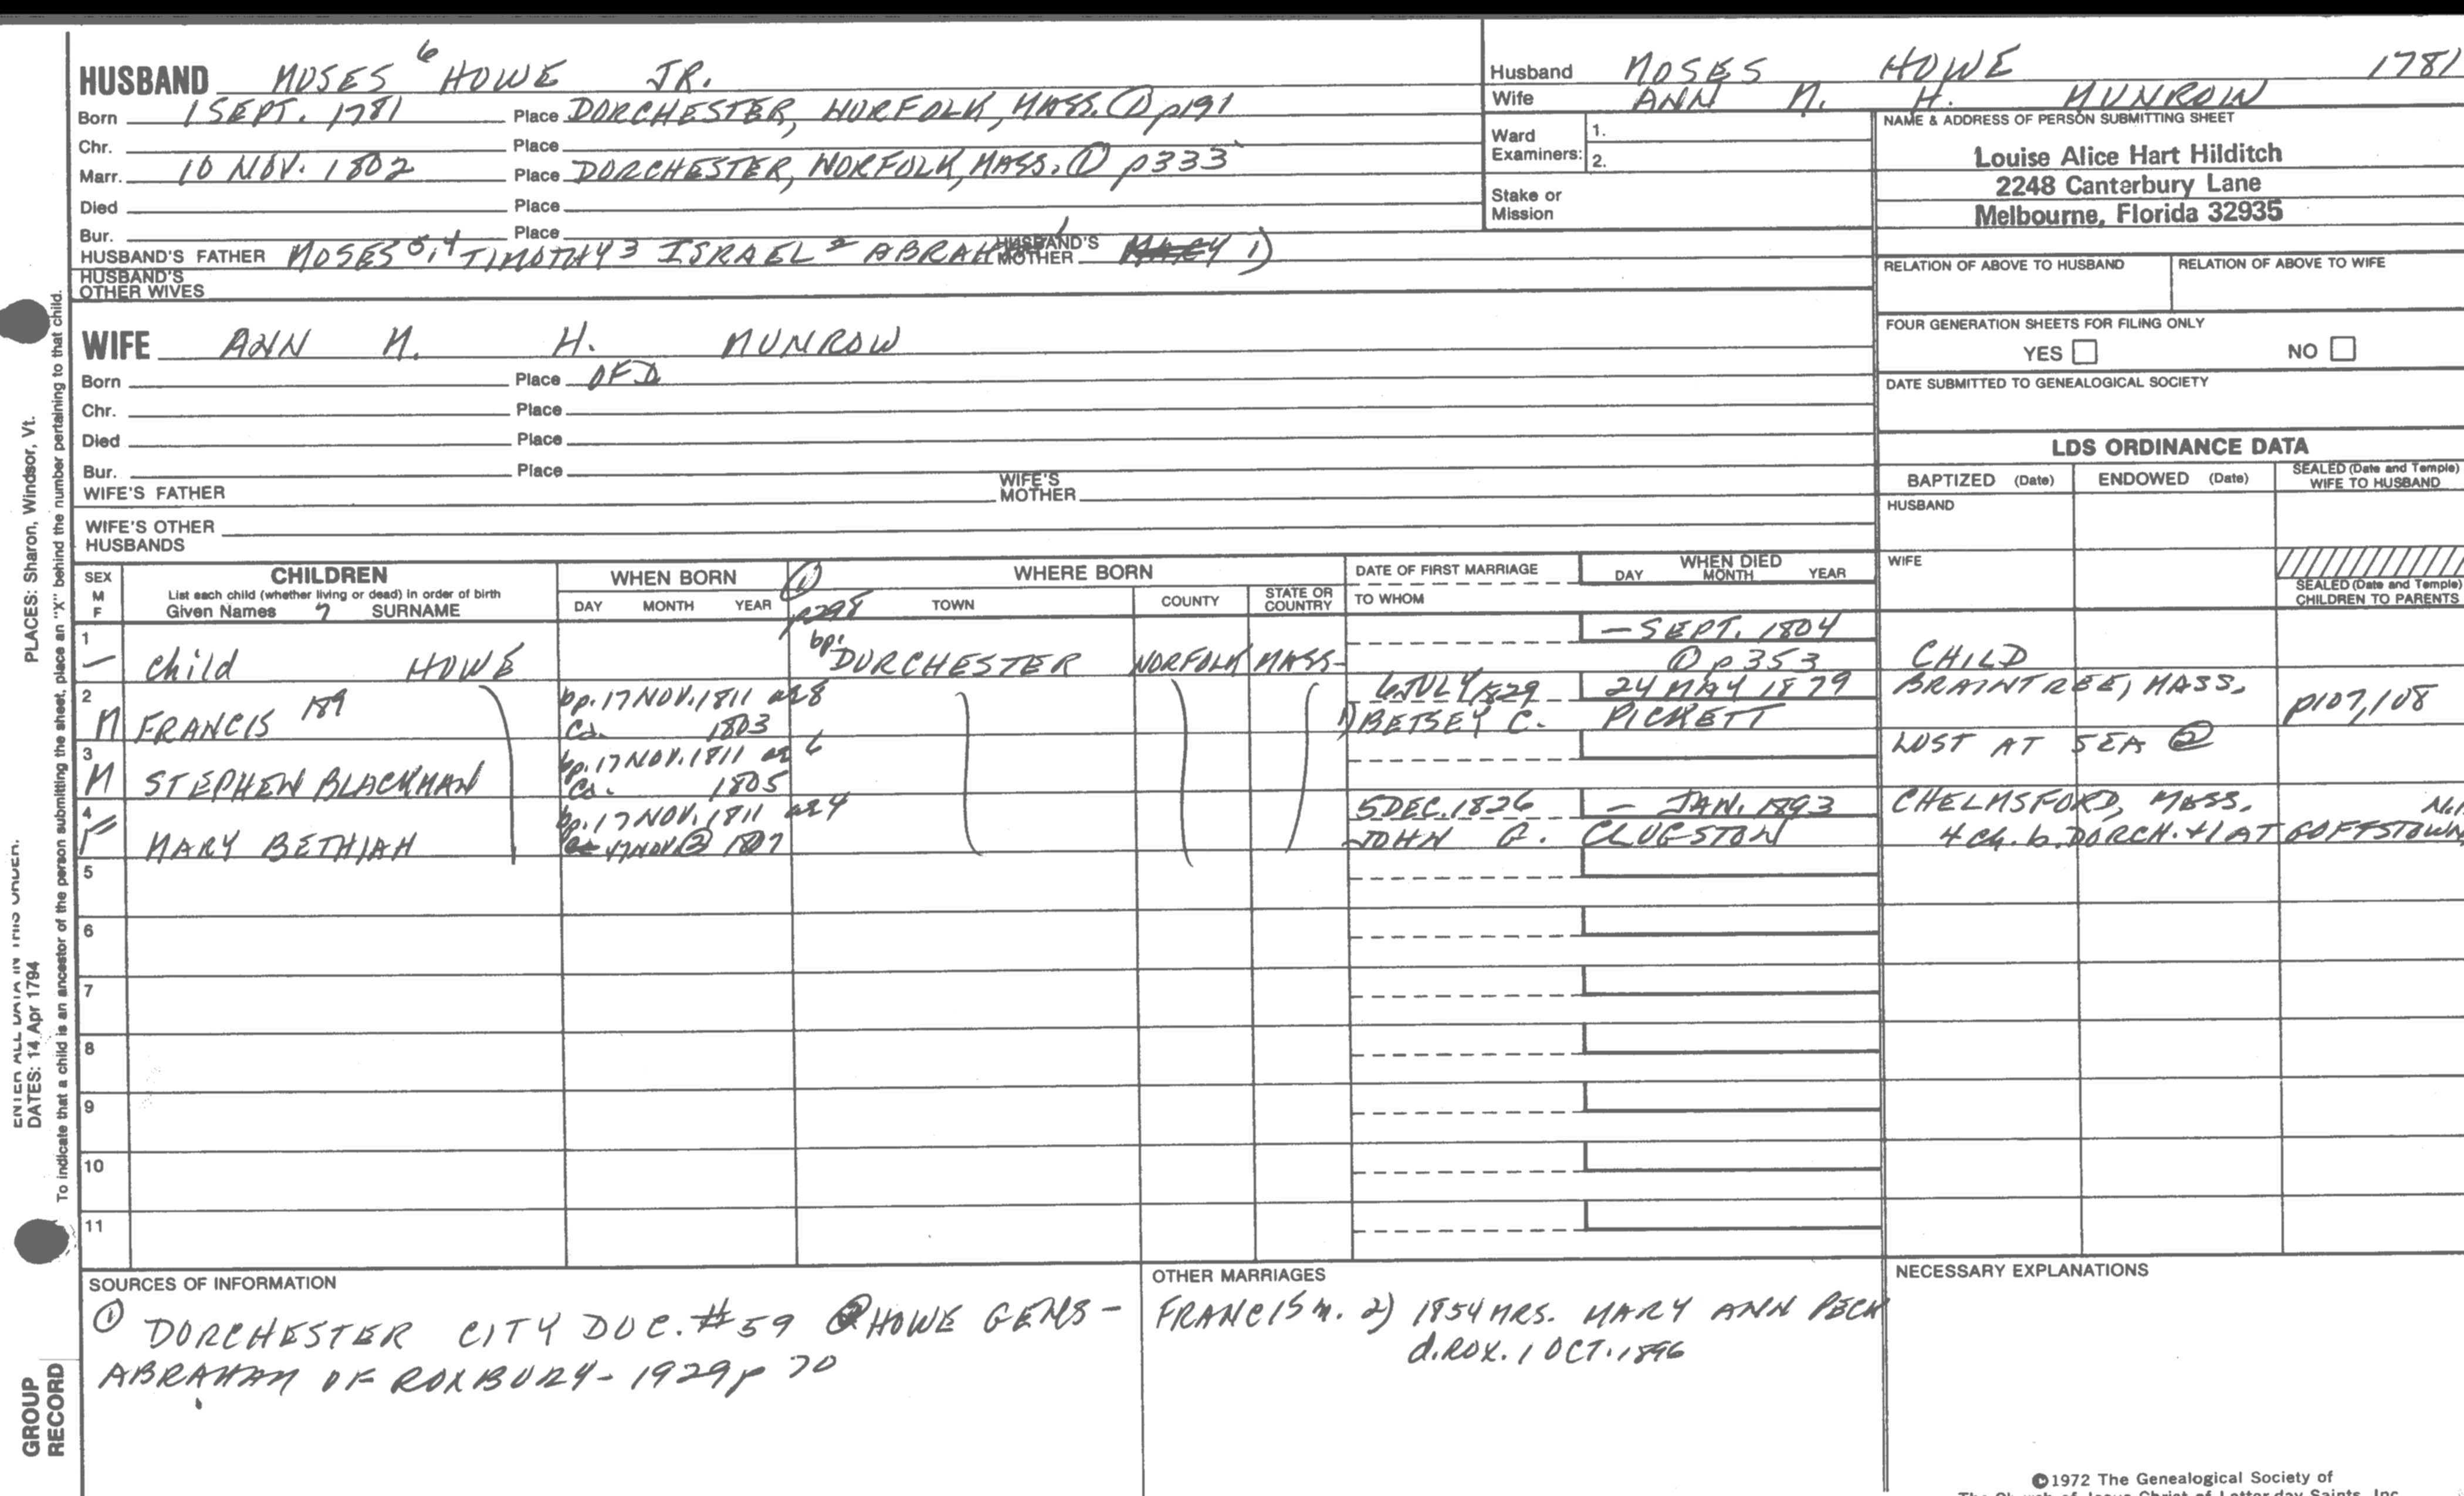 HUSBAND MOSES 6 HOWE JR.
Born 1 SEPT. 1781 Place DORCHESTER, NORFOLK, MASS. ① p191
Chr. Place
Marr. 10 NOV. 1802 Place DORCHESTER, NORFOLK, MASS. ① p333
Died Place
Bur. Place
HUSBAND'S FATHER MOSES 5,4 TIMOTHY 3 ISRAEL 2 ABRAH HUSBAND'S MOTHER MARY 1)
HUSBAND'S OTHER WIVES
Husband MOSES HOWE 1781
Wife ANN M. H. MUNROW
Ward Examiners: 1.
2.
Stake or Mission
NAME & ADDRESS OF PERSON SUBMITTING SHEET
Louise Alice Hart Hilditch
2248 Canterbury Lane
Melbourne, Florida 32935
RELATION OF ABOVE TO HUSBAND RELATION OF ABOVE TO WIFE
FOUR GENERATION SHEETS FOR FILING ONLY
YES NO
DATE SUBMITTED TO GENEALOGICAL SOCIETY
WIFE ANN M. H. MUNROW
Born Place OF D
Chr. Place
Died Place
Bur. Place
WIFE'S FATHER WIFE'S MOTHER
WIFE'S OTHER HUSBANDS
LDS ORDINANCE DATA
BAPTIZED (Date) ENDOWED (Date) SEALED (Date and Temple) WIFE TO HUSBAND
HUSBAND
WIFE
SEALED (Date and Temple) CHILDREN TO PARENTS
SEX M F CHILDREN WHEN BORN ① WHERE BORN DATE OF FIRST MARRIAGE WHEN DIED
List each child (whether living or dead) in order of birth
Given Names 7 SURNAME DAY MONTH YEAR p298 TOWN COUNTY STATE OR COUNTRY TO WHOM DAY MONTH YEAR
1 – SEPT. 1804
child HOWE bp. DORCHESTER NORFOLK MASS- ① p353 CHILD
2 bp. 17 NOV. 1811 ae 8 6 JULY 1829 24 MAY 1879 BRAINTREE, MASS.
M FRANCIS 189 Ca. 1803 1) BETSEY C. PICKETT p107,108
3 bp. 17 NOV. 1811 ae 6 LOST AT SEA ②
M STEPHEN BLACKMAN Ca. 1805
4 bp. 17 NOV. 1811 ae 4 5 DEC. 1826 – JAN. 1893 CHELMSFORD, MASS.
F MARY BETHIAH 17 NOV ② 1807 JOHN G. CLUGSTON 4 ch. b. DORCH. + 1 AT GOFFSTOWN,
5
6
7
8
9
10
11
SOURCES OF INFORMATION
① DORCHESTER CITY DOC. #59 ② HOWE GENS-
ABRAHAM OF ROXBURY- 1929 p 70
OTHER MARRIAGES
FRANCIS m. 2) 1854 MRS. MARY ANN PECK
d. ROX. 1 OCT. 1896
NECESSARY EXPLANATIONS
©1972 The Genealogical Society of
The Church of Jesus Christ of Latter-day Saints, Inc.
PLACES: Sharon, Windsor, Vt.
ENTER ALL DATA IN THIS ORDER.
DATES: 14 Apr 1794
To indicate that a child is an ancestor of the person submitting the sheet, place an "X" behind the number pertaining to that child.
GROUP
RECORD